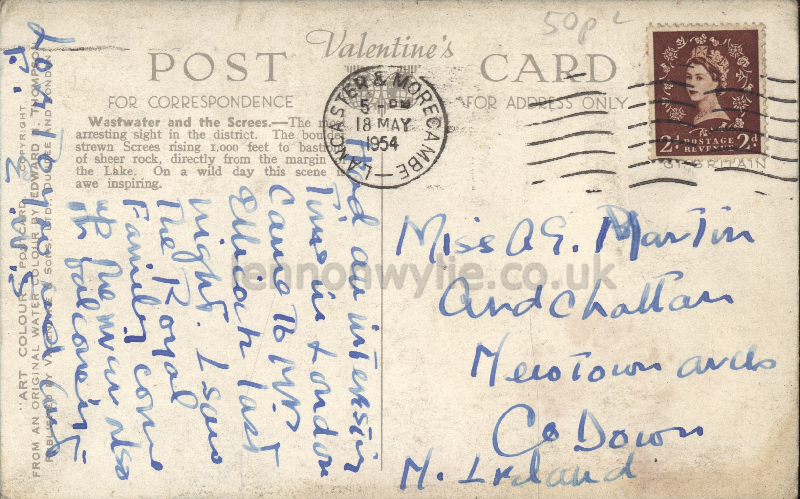 50p
Valentine's
POST CARD
FOR CORRESPONDENCE
FOR ADDRESS ONLY
Wastwater and the Screes.—The most
arresting sight in the district. The boulder
strewn Screes rising 1,000 feet to bastions
of sheer rock, directly from the margin of
the Lake. On a wild day this scene is
awe inspiring.
LANCASTER & MORECAMBE
5 - PM
18 MAY
1954
2d 2d
POSTAGE
REVENUE
GT. BRITAIN
"ART COLOUR" POSTCARD COPYRIGHT
FROM AN ORIGINAL WATER COLOUR BY EDWARD H. THOMPSON
PUBLISHED BY VALENTINE & SONS LTD. DUNDEE AND LONDON
Had an interesting
Time in London
Came to Mr
Elliah last
night. I saw
The Royal
Family come
up the river also
Miss A E. Martin
Ardchattan
Newtownards
Co Down
N. Ireland
lennonwylie.co.uk